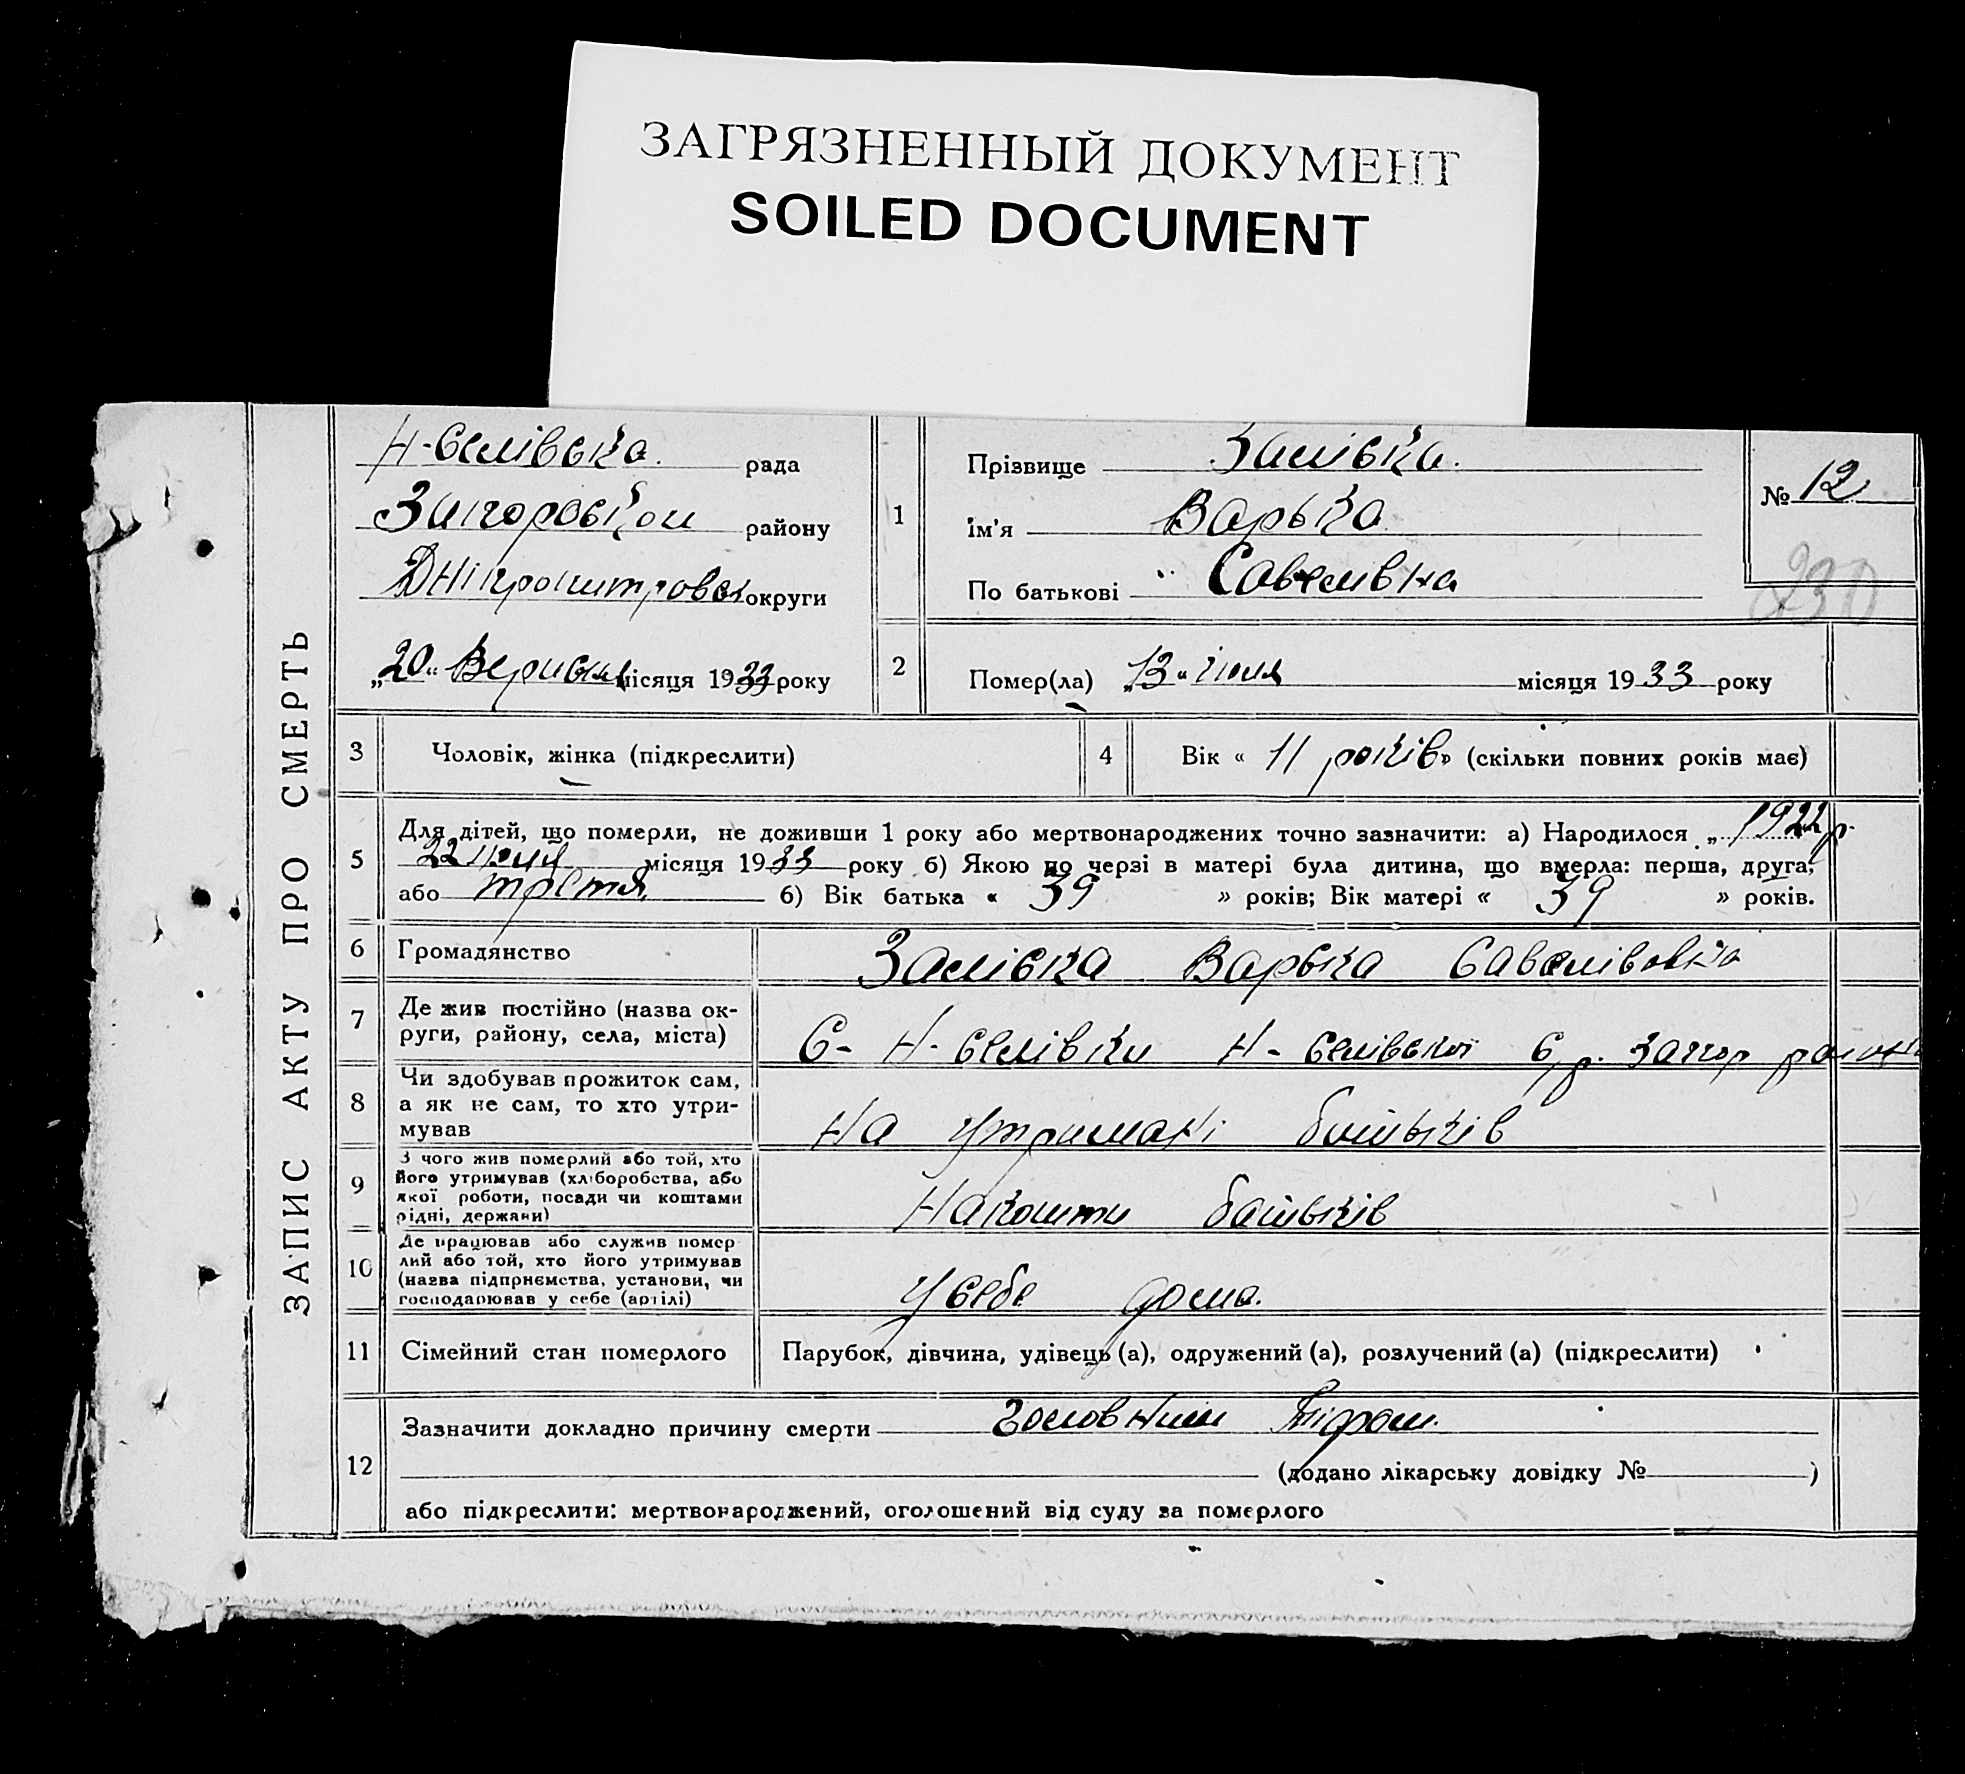 ЗАГРЯЗНЕННЫЙ ДОКУМЕНТ
SOILED DOCUMENT
ЗАПИС АКТУ ПРО СМЕРТЬ
Н-Єелівська рада
району
округи
„20“ Вересня місяця 1933 року
1
Прізвище
Ім'я Варька
По батькові Савелівна
№ 12
230
2
Помер(ла) „13“ іюля місяця 1933 року
3 Чоловік, жінка (підкреслити)
4 Вік « 11 років» (скільки повних років має)
5 Для дітей, що померли, не доживши 1 року або мертвонароджених точно зазначити: а) Народилося „ 1922 р.
22 місяця 1933 року б) Якою по черзі в матері була дитина, що вмерла: перша, друга,
або третя, б) Вік батька « 39 » років; Вік матері « 39 » років.
6 Громадянство Варька
7 Де жив постійно (назва ок-
руги, району, села, міста) с- р. район
8 Чи здобував прожиток сам,
а як не сам, то хто утри-
мував На утримані батьків
9 З чого жив померлий або той, хто
його утримував (хліборобства, або
якої роботи, посади чи коштами
рідні, держави) На кошти батьків
10 Де працював або служив помер
лий або той, хто його утримував
(назва підприємства, установи, чи
господарював у себе (артілі) У себе дома.
11 Сімейний стан померлого Парубок, дівчина, удівець (а), одружений (а), розлучений (а) (підкреслити)
12 Зазначити докладно причину смерти Головним Тіфом.
(додано лікарську довідку № )
або підкреслити: мертвонароджений, оголошений від суду за померлого